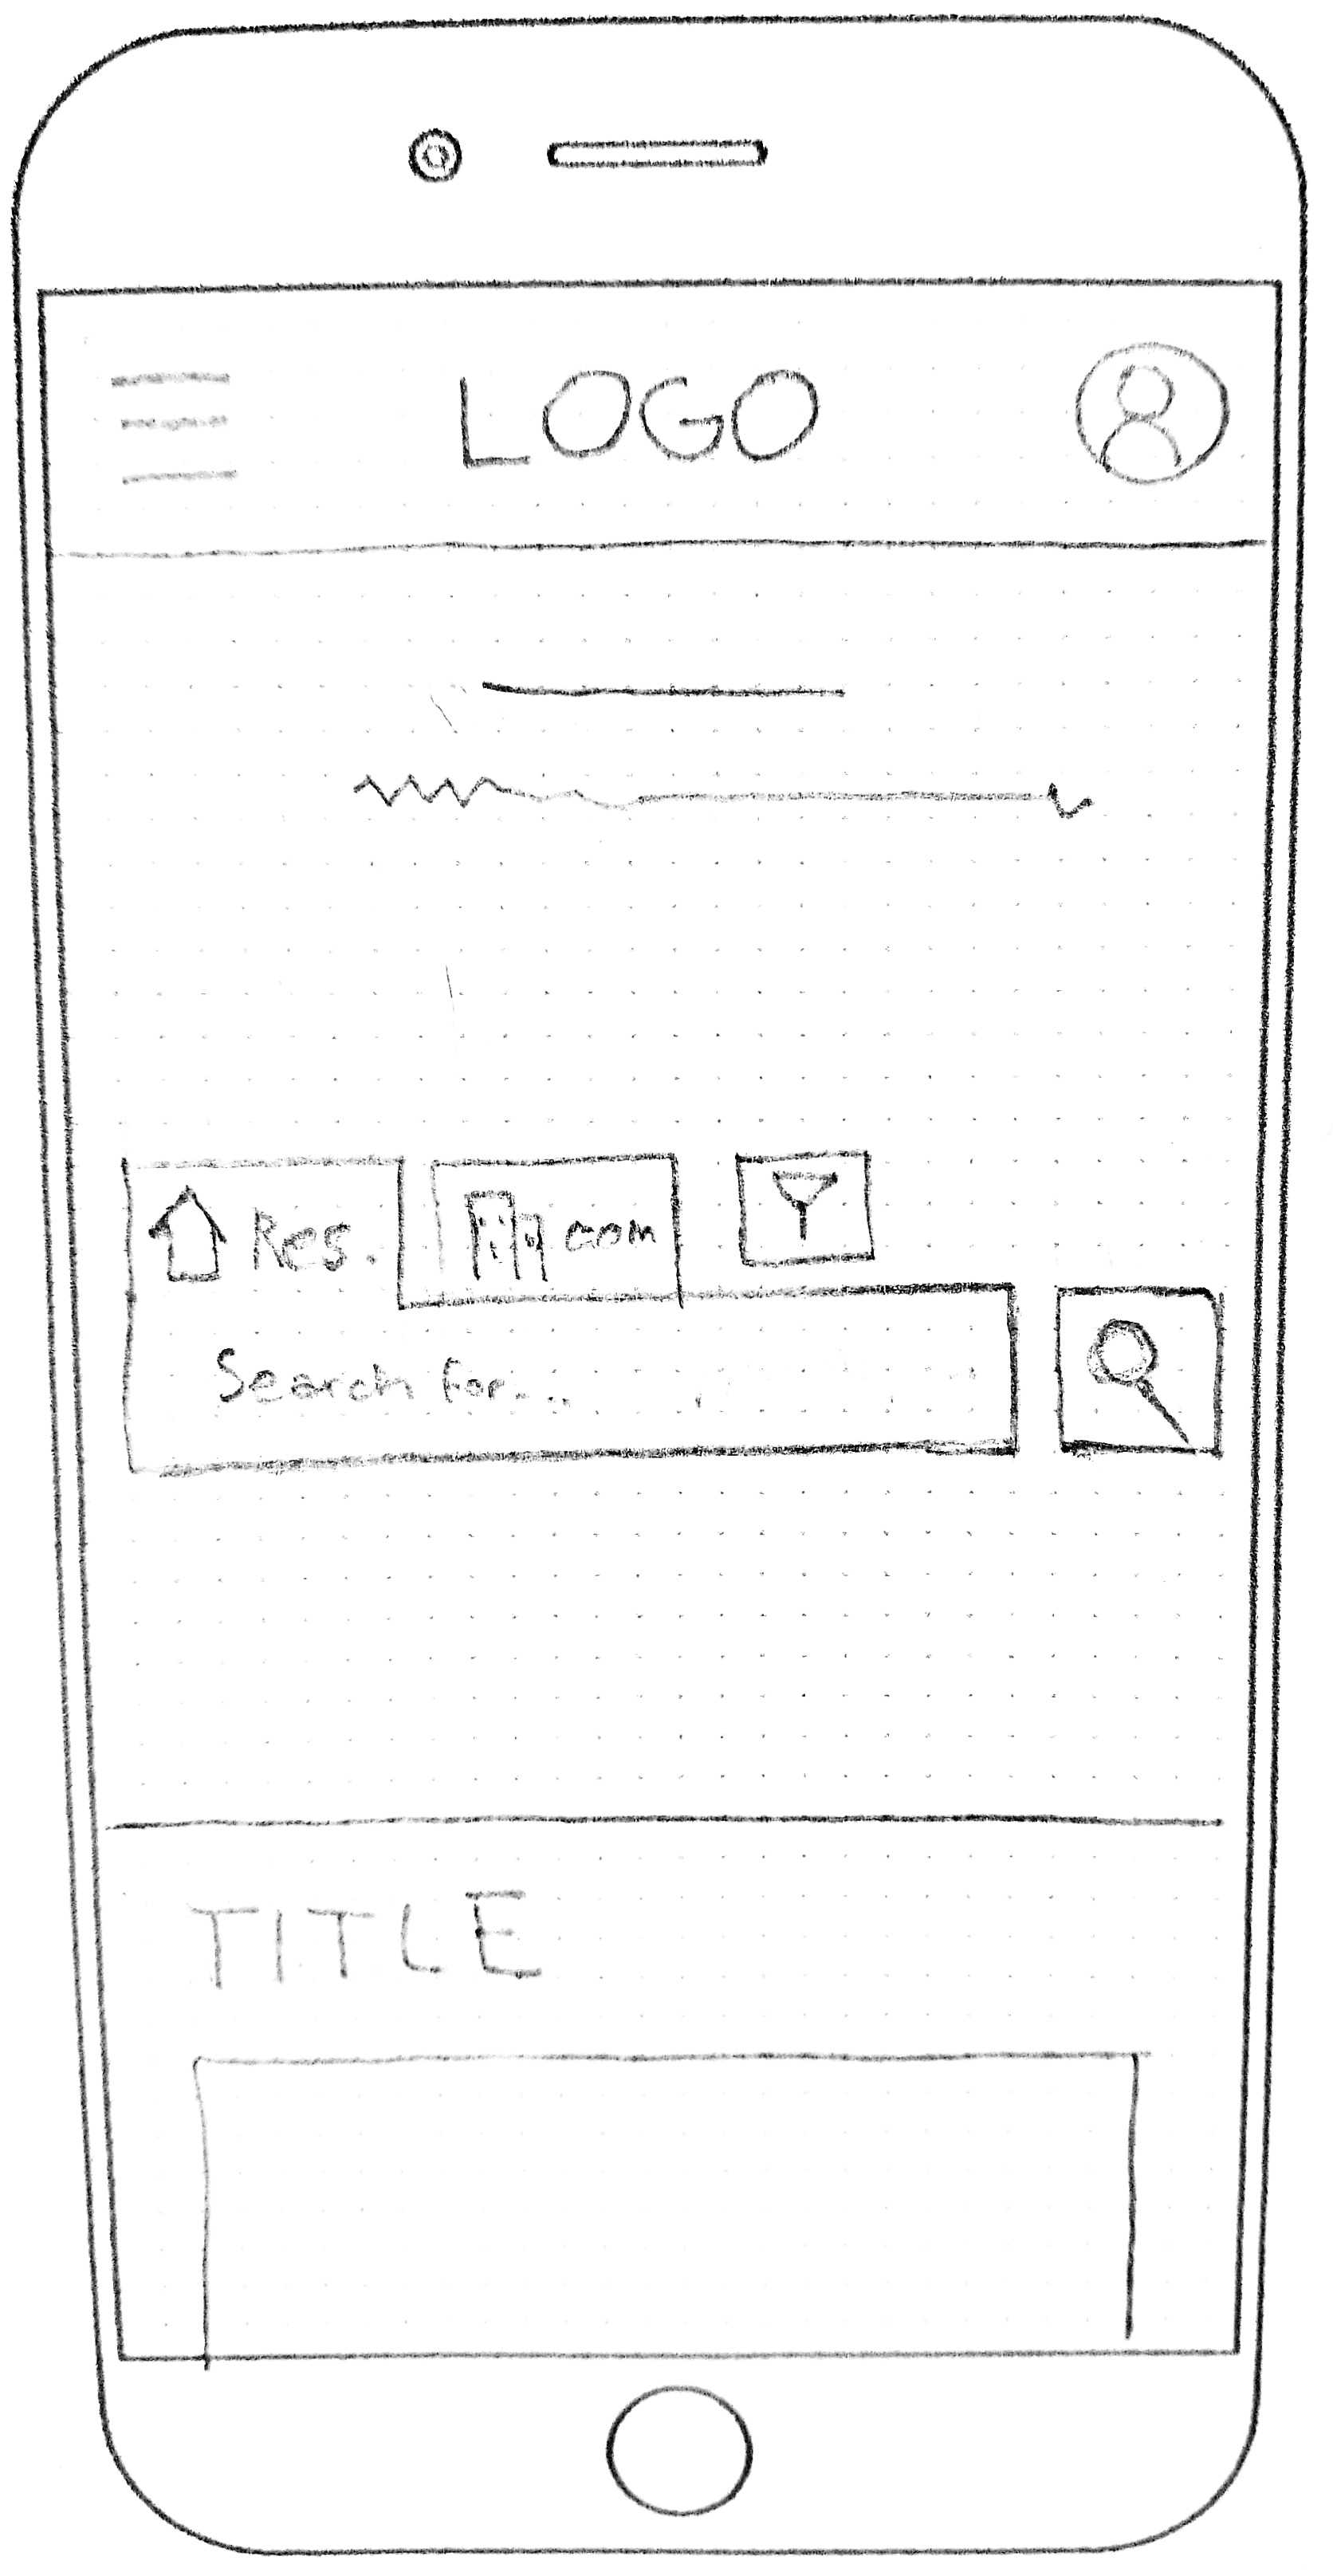 LOGO
Res. com
Search for...
TITLE